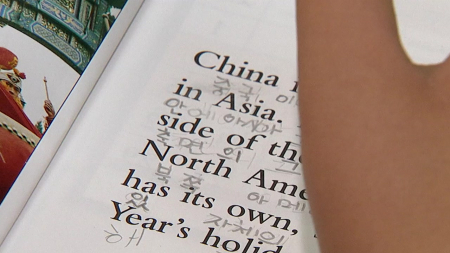 China
중국 이
in Asia.
안에 아시아
side of the
측면 의 그
North Ame
북쪽 아메
has its own,
있 자체의
Year's holid
해